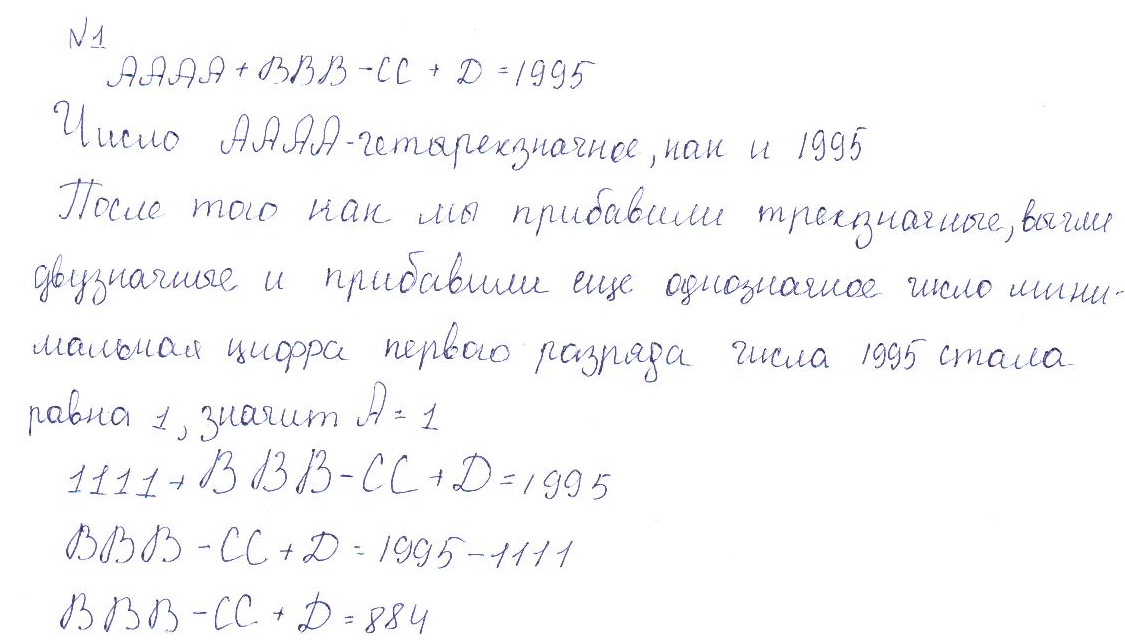 №1
AAAA + BBB - CC + D = 1995
Число AAAA - четырехзначное, как и 1995
После того как мы прибавили трехзначные, вычли
двузначные и прибавили еще однозначное число мини-
мальная цифра первого разряда числа 1995 стала
равна 1, значит A = 1
1111 + BBB - CC + D = 1995
BBB - CC + D = 1995 - 1111
BBB - CC + D = 884